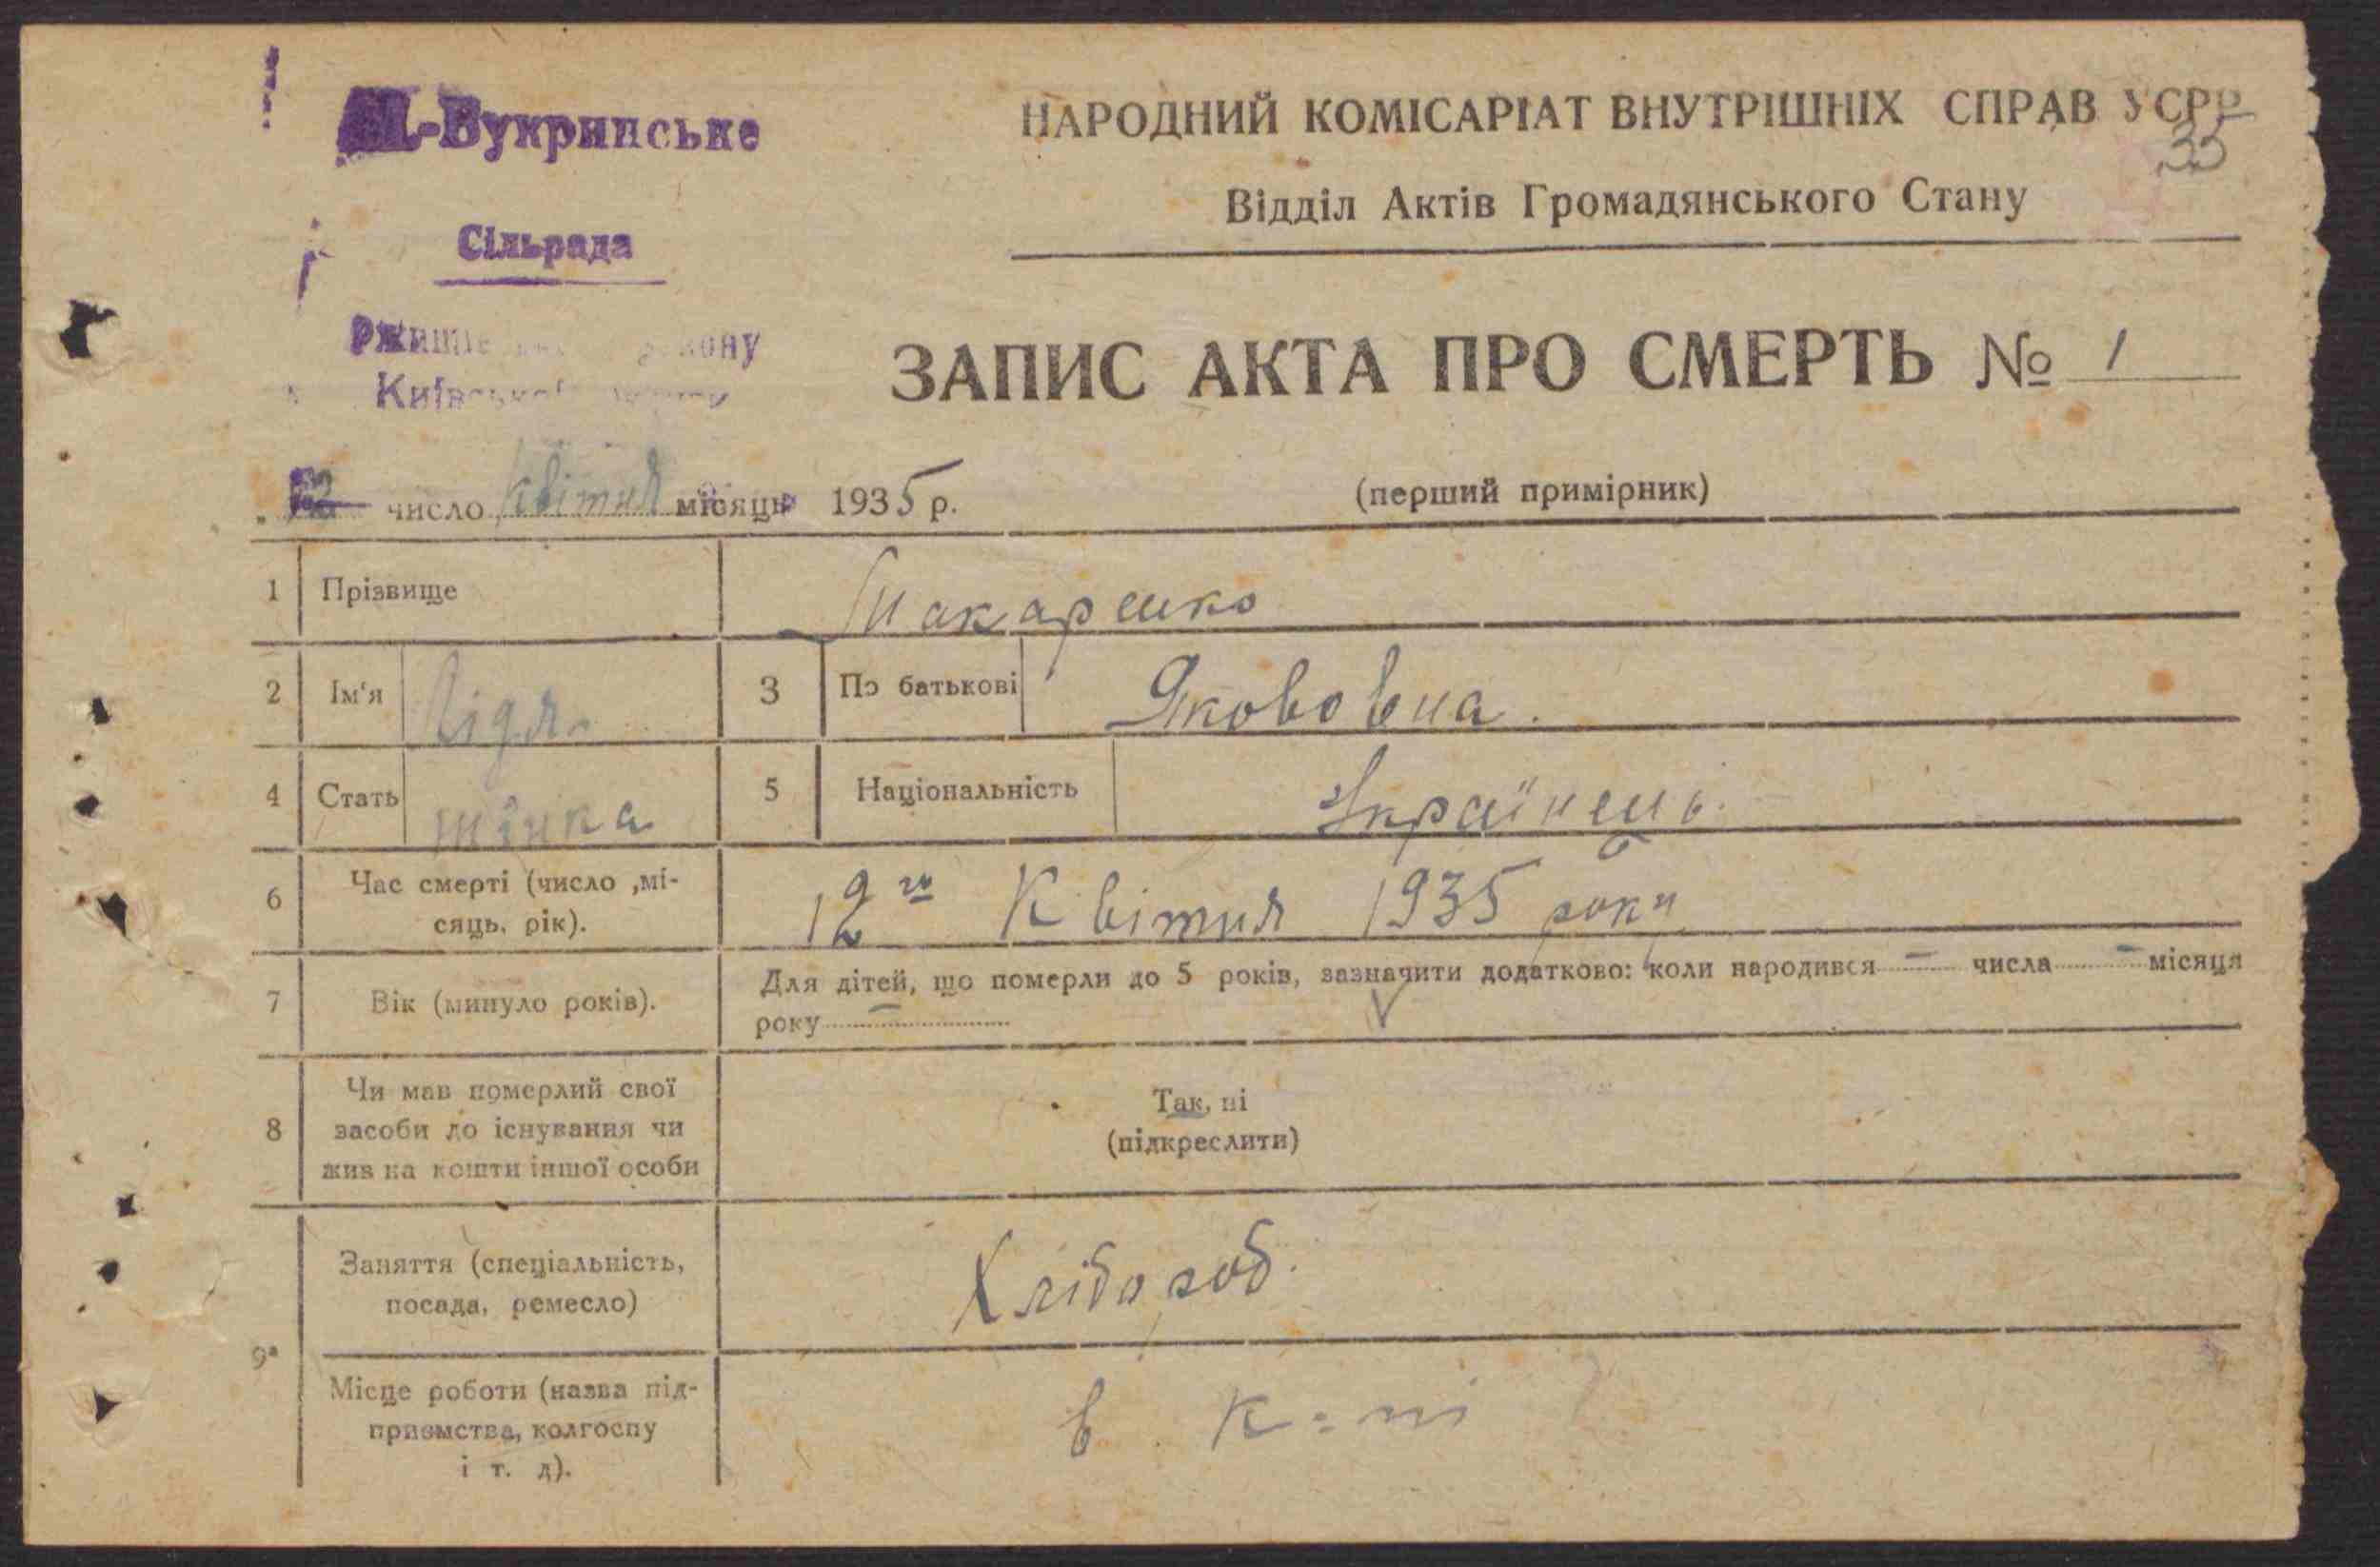 -Букринське
Сільрада
Київської
НАРОДНИЙ КОМІСАРІАТ ВНУТРІШНІХ СПРАВ УСРР
33
Відділ Актів Громадянського Стану
ЗАПИС АКТА ПРО СМЕРТЬ № 1
число Квітня місяць 1935 р.
(перший примірник)
1 Прізвище Макаренко
2 Ім'я Лідя 3 По батькові Якововна.
4 Стать жінка 5 Національність Українець.
6 Час смерті (число ,мі-
сяць, рік).
12го Квітня 1935 року
7 Вік (минуло років).
Для дітей, що померли до 5 років, зазначити додатково: коли народився — числа — місяця
року —
8 Чи мав померлий свої
засоби до існування чи
жив на кошти іншої особи
Так, ні
(підкреслити)
9а
Заняття (спеціальність,
посада, ремесло)
Хлібороб.
Місце роботи (назва під-
приємства, колгоспу
і т. д).
в к=пі